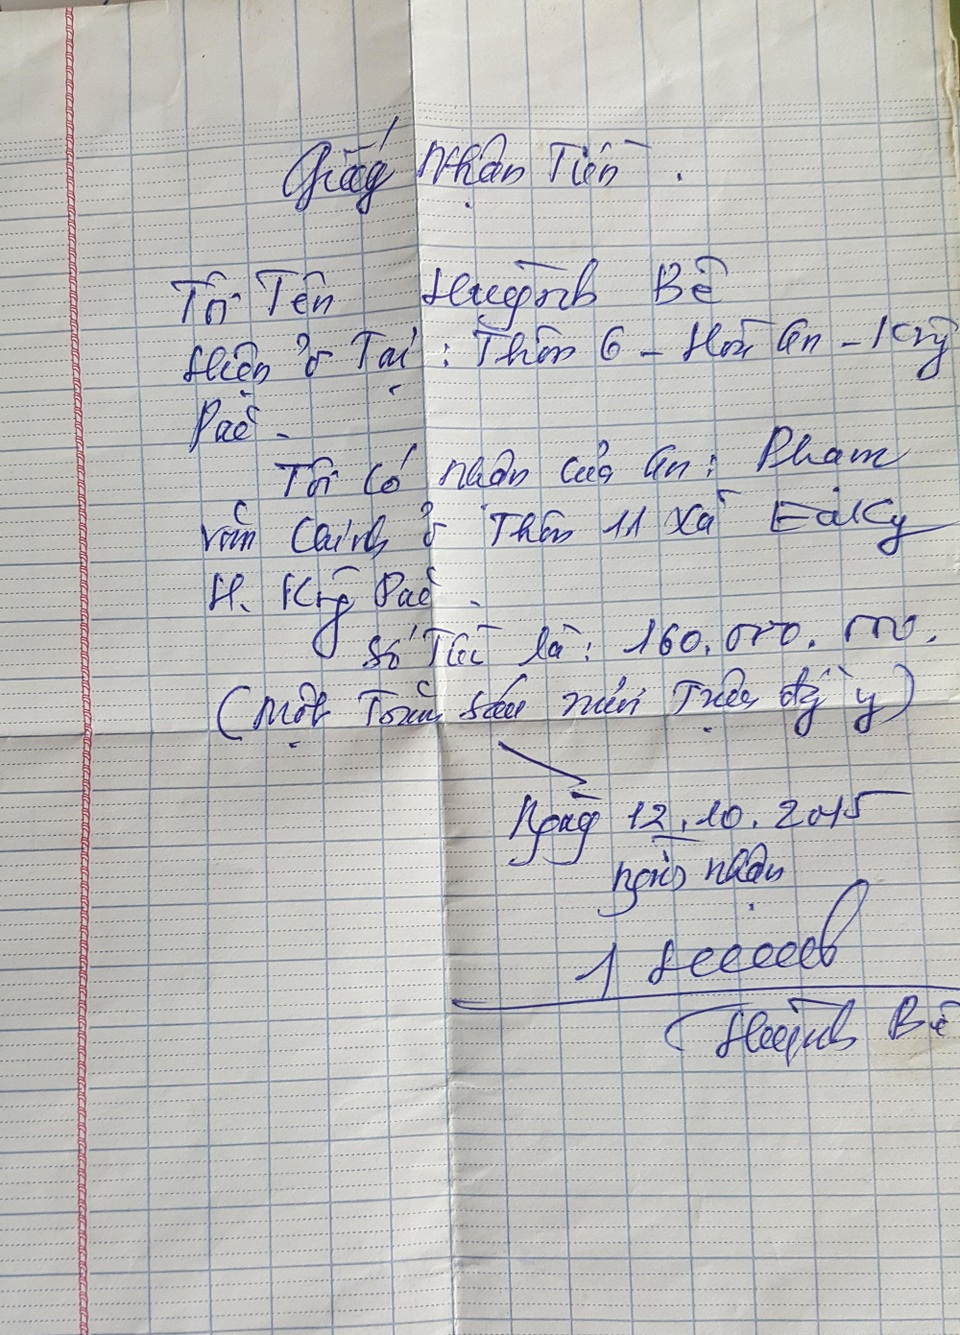 Giấy nhận Tiền.
Tôi Tên Huỳnh Bê
Hiện ở Tại: Thôn 6 - Hoà An - Krông
Pắc.
Tôi có nhận của An: Phạm
văn Chính ở Thôn 11 xã EaKly
H. Krông Pắc.
Số Tiền là: 160.000.000.
(Một Trăm sáu mươi Triệu đồng y)
Ngày 12.10.2015
người nhận
Huỳnh Bê